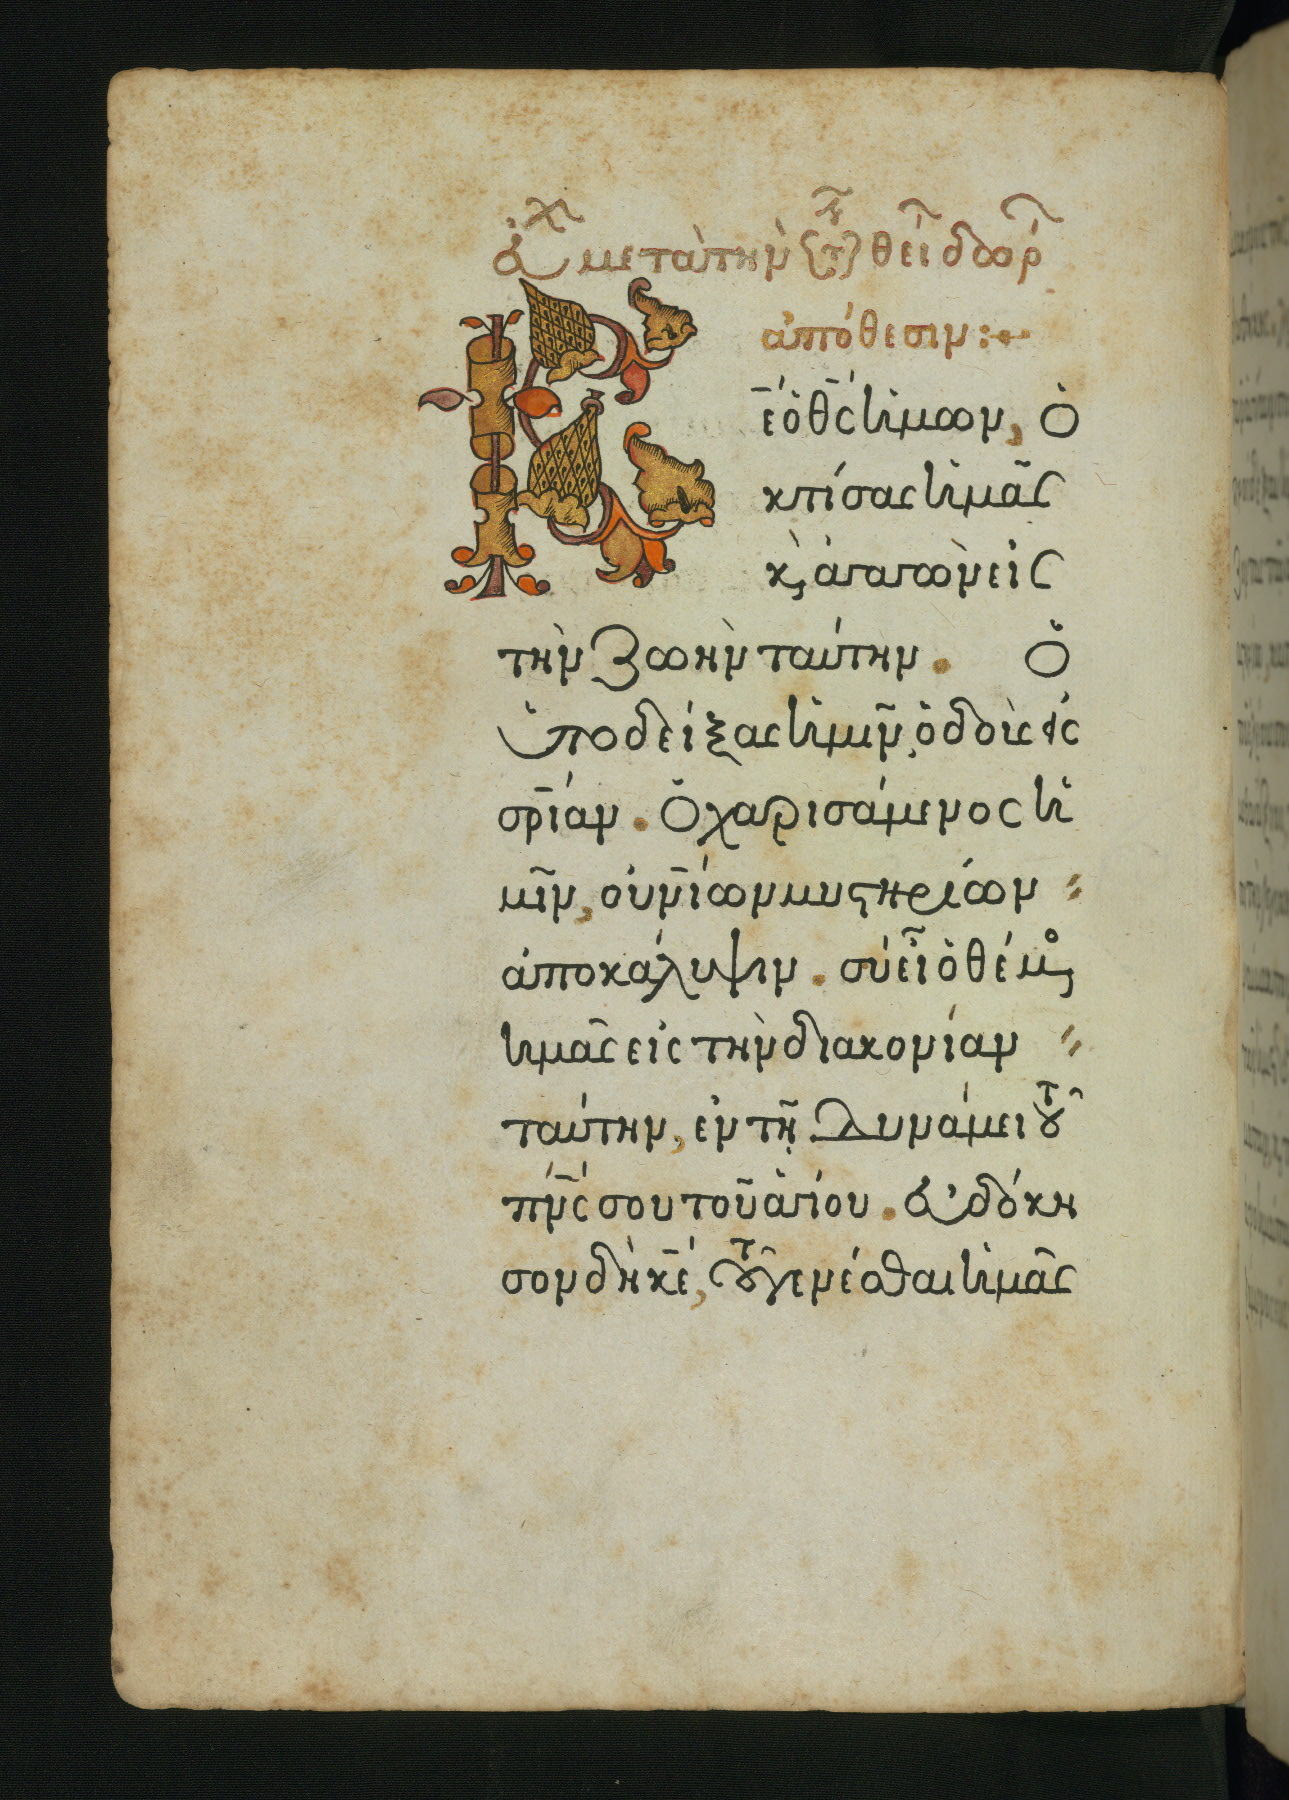 εὐχὴ μετὰ τὴν τῶν θείων δώρων
ἀπόθεσιν:
Κε ὁ θς ἡμῶν, ὁ
κτίσας ἡμᾶς
κ ἀγαγὼν εἰς
τὴν ζωὴν ταύτην. ὁ
ὑποδείξας ἡμῖν ὁδοὺς εἰς
σρίαν. ὁ χαρισάμενος ἡ
μῖν, οὐνίων μυστηρίων
ἀποκάλυψιν. σὺ εἶ ὁ θέμενος
ἡμᾶς εἰς τὴν διακονίαν
ταύτην, ἐν τῇ δυνάμει τοῦ
πνς σου τοῦ ἁγίου. εὐδόκη
σον δὴ κε, τοῦ γενέσθαι ἡμᾶς